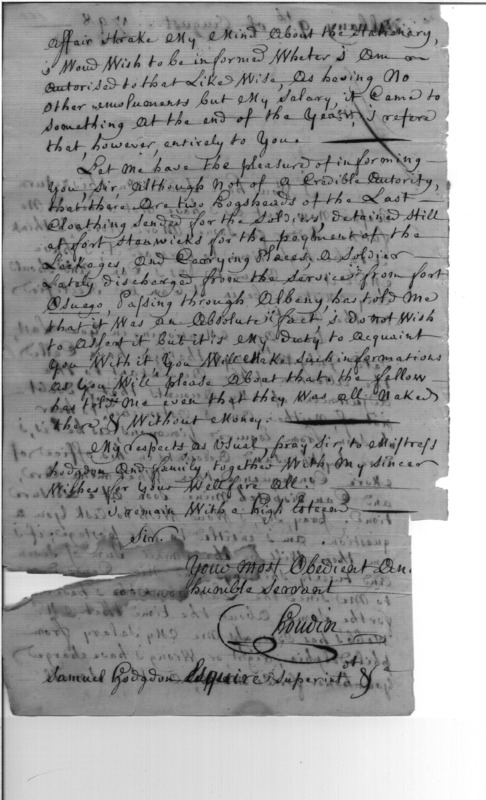 affair I trake My Mind About the Stationary,
I Woud Wish to be informed Wheter I Am
Autorised to that Like Wise, As having No
other emoluments but My Salary, it Came to
something At the end of the Year, I refere
that, however, entirely to You.
Let Me have the pleasure of informing
You, Sir, Although Not of A Credible Autority,
that there Are two hogsheads of the Last
Cloathing Sended for the Soldiers detained Still
at fort Stanwicks for the payment of the
Lockages, And Carrying Places. A Soldier
Lately discharged from the Service from fort
Oswego, Passing through Albeny has told Me
that it Was An Absolute fact I do not Wish
to Assert it but it is My duty to Acquaint
You With it You Will Make Such informations
As You Will please About that the fellow
has told Me even that they Was all Naked
there & Without Money.
My respects as Usual, pray Sir, to Mistress
hodgdon And family, together With My Sincer
Wishes for Your Wellfare All.
I remain With a high Esteem
Sir.
Your Most Obedient An
humble Servant
Houdin
Samuel Hodgdon Esquire Superint ot &